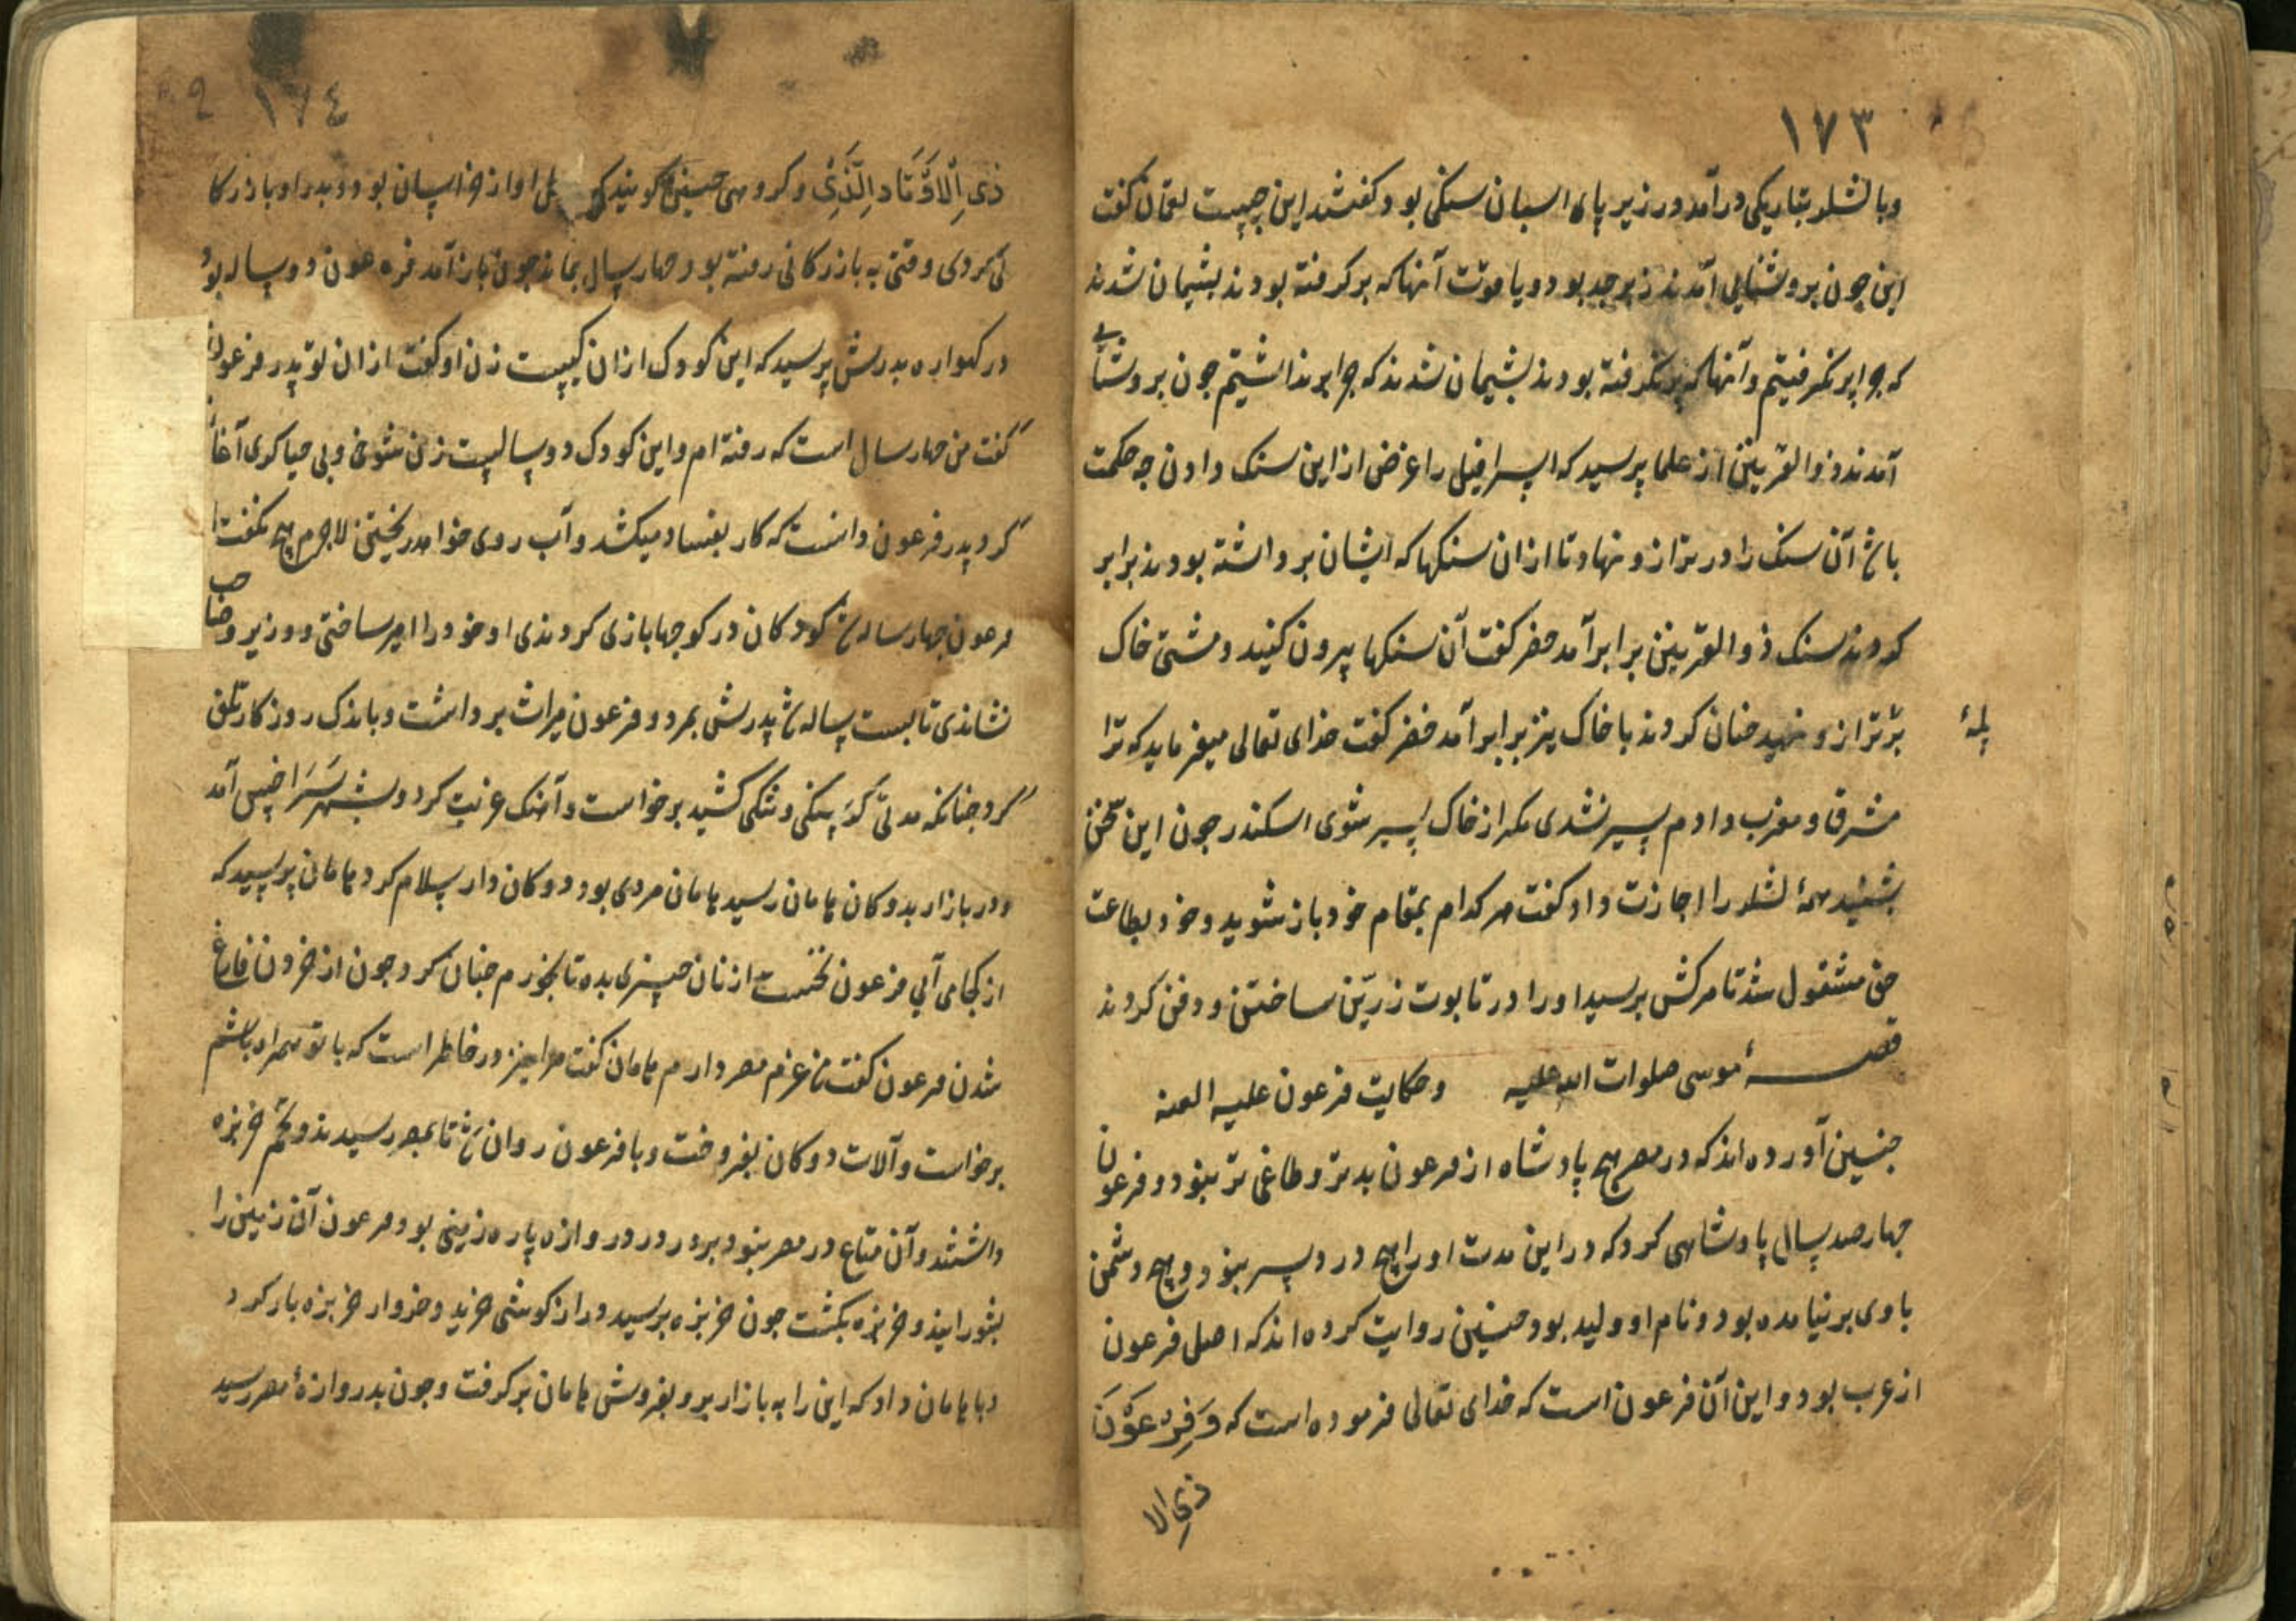 ١٧٣
وبا لشکر بتاریکی درآمد در زیر پای اسبان سنکی بود کفتند این چیست لقمان کفت
این چون بروشنایی آمدند زبرجد بود و یاقوت آنها که برکرفته بودند پشیمان شدند
که چرا برنکرفتیم و آنها که برنکرفته بودند پشیمان شدند که چرا برنداشتیم جون بروشنایی
آمدند ذوالقرنین از علما پرسید که اسرافیل را غرض از این سنک دادن چه حکمت
باشد آن سنک را در ترازو نهاد تا ازان سنکها که ایشان برداشته بودند برابر
کردند سنک ذوالقرنین برابر آمد خضر کفت آن سنکها بیرون کنید و مشتی خاک
بر ترازو نهید جنان کردند با خاک نیز برابر آمد خضر کفت خدای تعالی میفرماید که ترا
پلهٔ
مشرق و مغرب دادم سیر نشدی مکر از خاک سیر شوی اسکندر جون این سخن
بشنید همهٔ لشکر را اجازت داد کفت هر کدام بمقام خود باز شوید و خود بطاعت
حق مشغول شد تا مرکش برسید او را در تابوت زرین ساختن و دفن کردند
قصهٔ موسی صلوات الله علیه و حکایت فرعون علیه العنه
جنین آورده اند که در مصر هیچ پادشاه از فرعون بدتر و طاغی تر نبود و فرعون
جهارصد سال پادشاهی کرد که در این مدت او را هیچ درد سر نبود و هیچ دشمن
با وی برنیامده بود و نام او ولید بود جنین روایت کرده اند که اصل فرعون
از عرب بود و این آن فرعون است که خدای تعالی فرموده است که وَفِرْعَوْنَ
ذی الا
١٧٤
ذِی اْلاَوْتَادِ الَّذِی و کروهی جنین کویند که اصل او از خراسان بود و پدر او بازرکا
نی کردی وقتی به بازرکانی رفته بود جهار سال بماند جون باز آمد فرعون دو ساله بود
در کهواره پدرش پرسید که این کودک ازان کیست زن او کفت ازان تو پدر فرعون
کفت من جهار سال است که رفته ام و این کودک دو سالیست زن شوخی و بی حیا کری آغاز
کرد پدر فرعون دانست که کار بفساد میکشد و آب روی خواهد ریختن لاجرم هیچ نکفت تا
فرعون جهار ساله شد کودکان در کوجها بازی کردندی او خود را امیر ساختی و وزیر و حاجب
نشاندی تا بیست ساله شد پدرش بمرد و فرعون میراث برداشت و باندک روزکار تلف
کرد جنانکه مدتی کرسنکی و تنکی کشید برخواست و آهنک غربت کرد و بشهر سَرَاخس آمد
و در بازار بدوکان هامان رسید هامان مردی بود دوکان دار سلام کرد هامان پرسید که
از کجا می آیی فرعون نخست از نان چیزی بده تا بخورم جنان کرد جون از خوردن فارغ
شدن فرعون کفت من عزم مصر دارم هامان کفت مرا نیز در خاطر است که با تو همراه باشم
برخواست و آلات دوکان بفروخت و با فرعون روان شد تا بمصر رسیدند و تخم خربزه
داشتند و آن متاع در مصر نبود بر در دروازه پاره زمینی بود فرعون آن زمین را
بشورانید و خربزه بکشت جون خربزه برسید دراز کوشی خرید و خروار خربزه بار کرد
و با هامان داد که این را به بازار بر و بفروش هامان برکرفت و جون بدروازهٔ مصر رسید